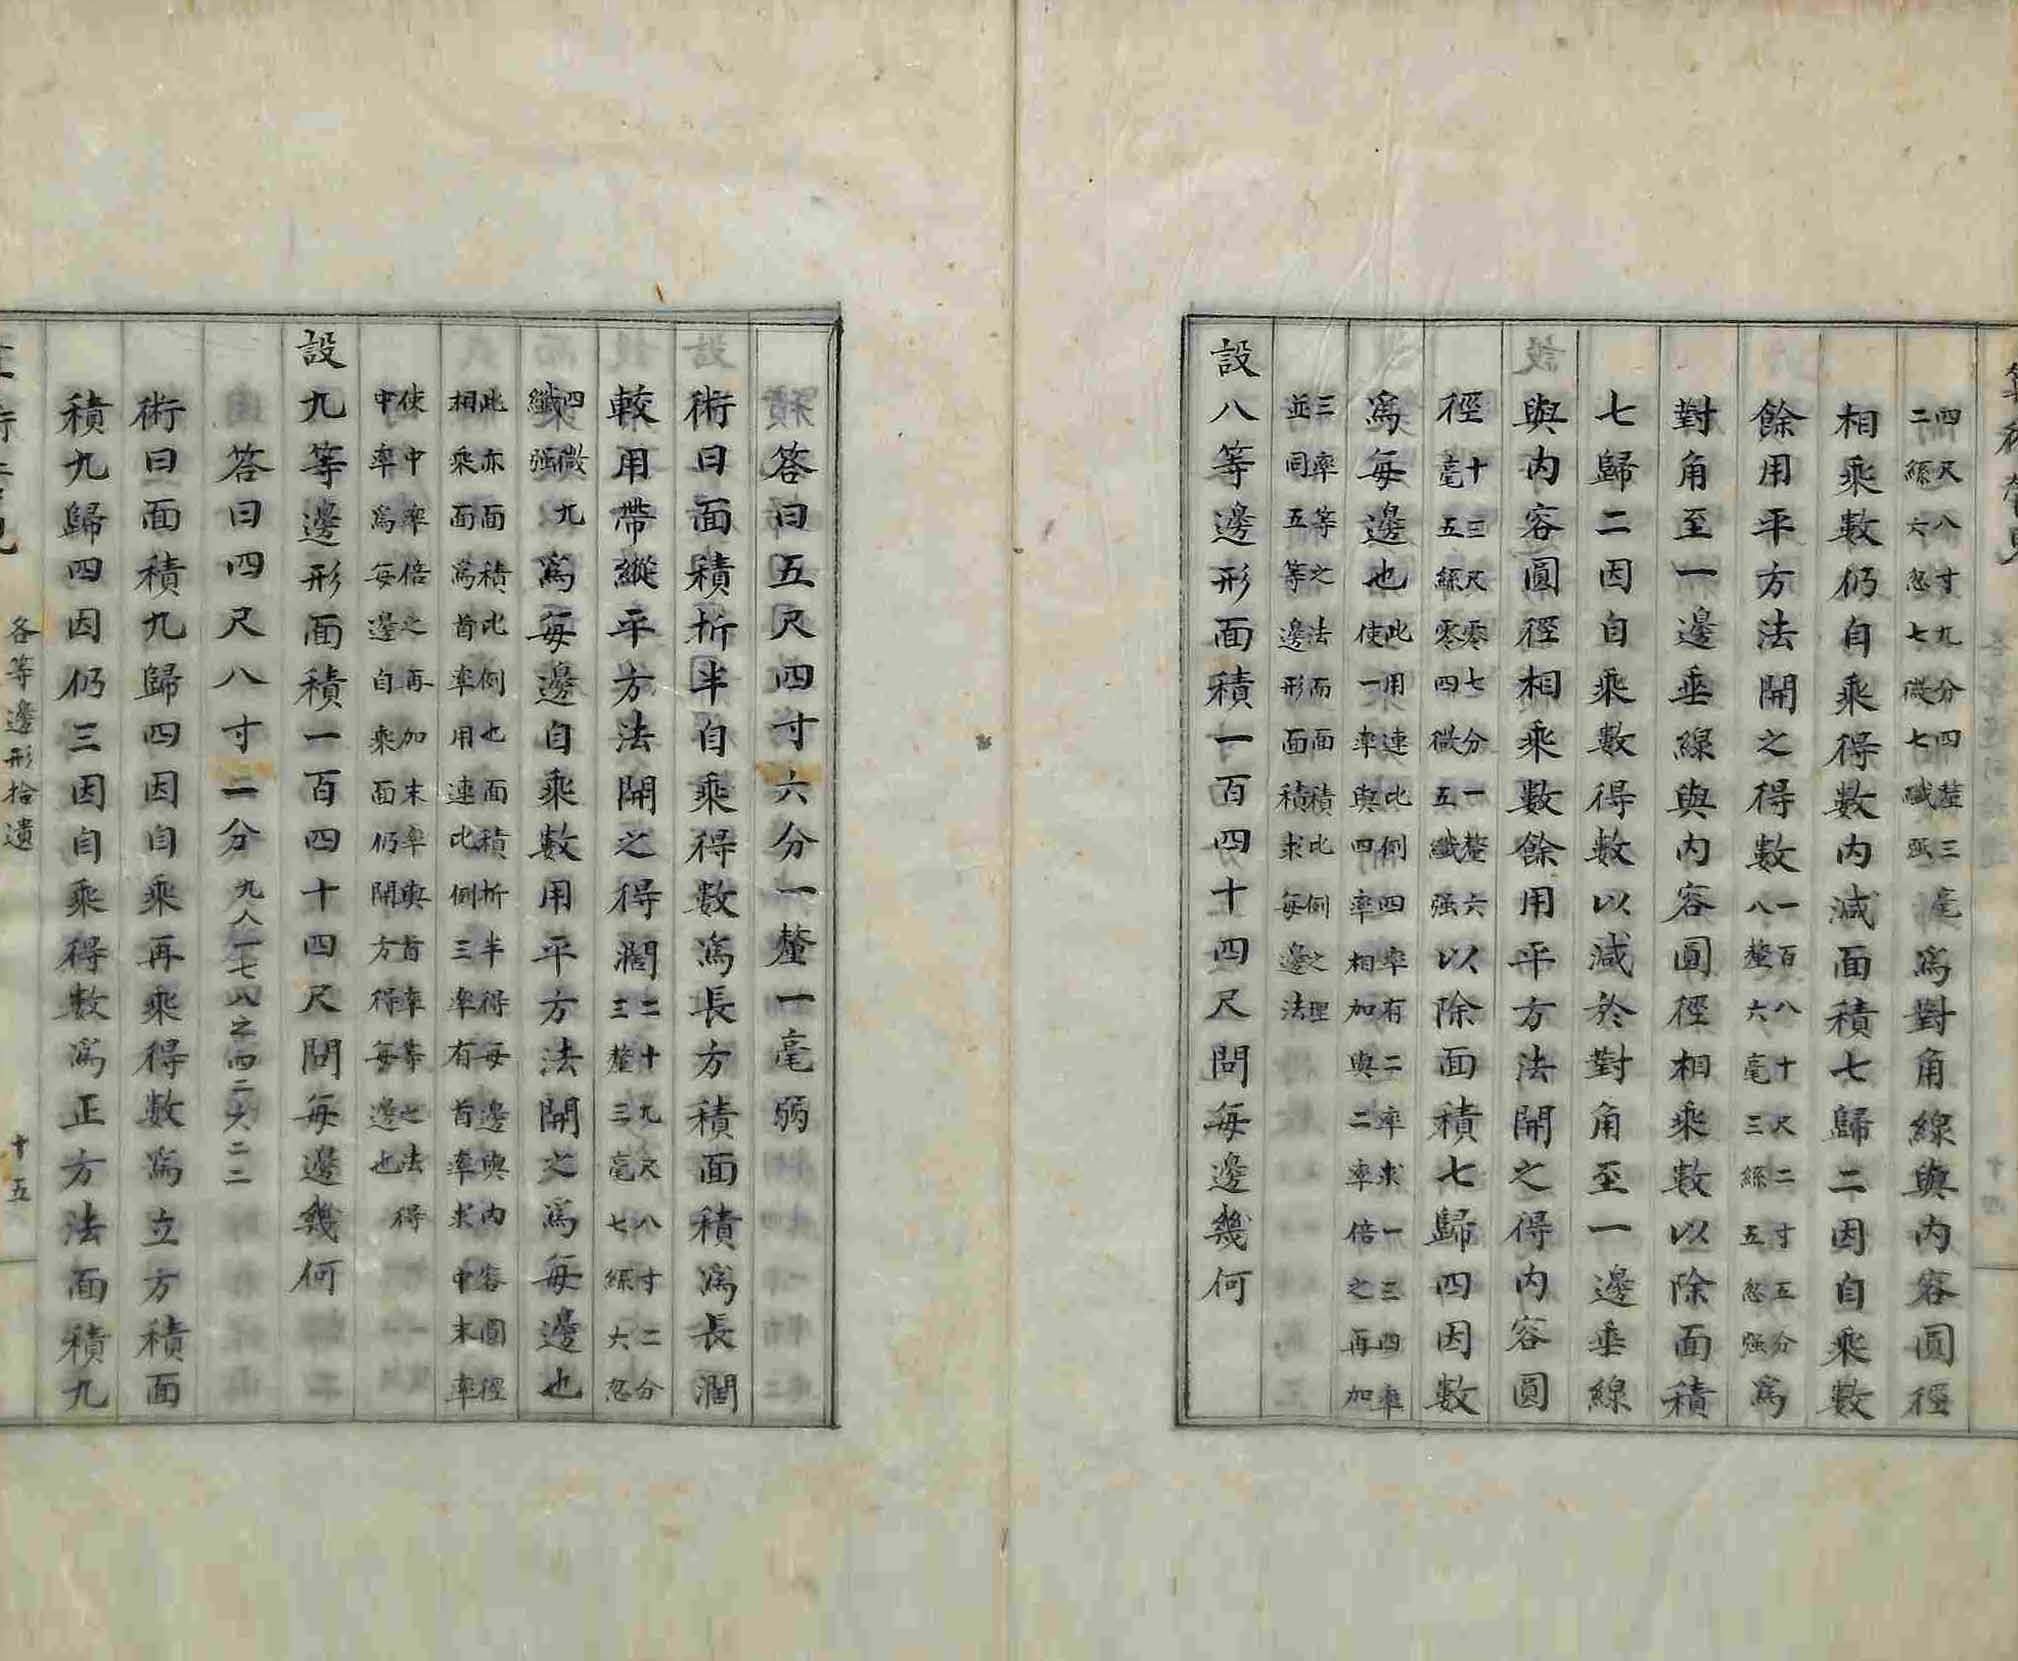 四尺八寸九分四釐三毫
二絲六忽七微七纖弱
爲對角線與内容圓徑
相乘數仍自乘得數内減面積七歸二因自乘數
餘用平方法開之得數
一百八十尺二寸五分
八釐六毫三絲五忽强
爲
對角至一邊垂線與内容圓徑相乘數以除面積
七歸二因自乘數得數以減於對角至一邊垂線
與内容圓徑相乘數餘用平方法開之得内容圓
徑
十三尺零七分一釐六
毫五絲零四微五纖强
以除面積七歸四因數
爲每邊也
此用連比例四率有二率求一三四率
使一率與四率相加與二率倍之再加
三率等之法而面積比例之理
並同五等邊形面積求每邊法
設八等邊形面積一百四十四尺問每邊幾何
答曰五尺四寸六分一釐一毫弱
術曰面積折半自乘得數爲長方積面積爲長濶
較用帶縱平方法開之得濶
二十九尺八寸二分
三釐三毫七絲六忽
四微九
纖强
爲每邊自乘數用平方法開之爲每邊也
此亦面積比例也面積折半得每邊與内容圓徑
相乘面爲首率用連比例三率有首率求中末率
使中率倍之再加末率與首率等之法得
中率爲每邊自乘面仍開方得每邊也
設九等邊形面積一百四十四尺問每邊幾何
答曰四尺八寸二分九八一七八之四二六二二
術曰面積九歸四因自乘再乘得數爲立方積面
積九歸四因仍三因自乘得數爲正方法面積九
各等邊形拾遺
十五